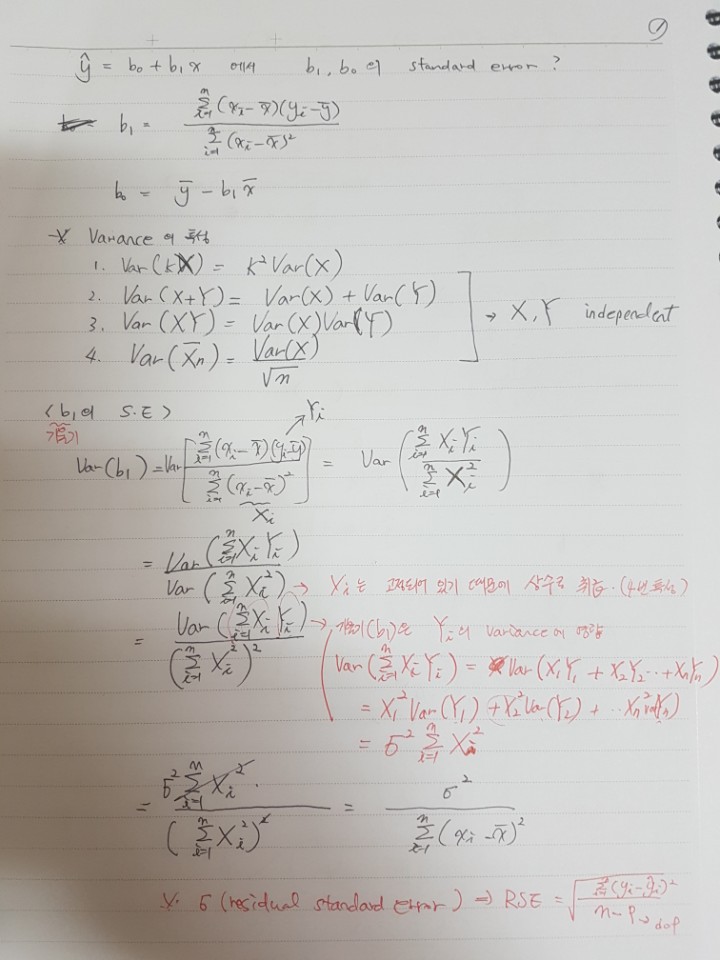 ①
ŷ = b₀ + b₁x 에서 b₁, b₀의 standard error ?
b₁ = Σᵢ₌₁ⁿ (xᵢ - x̄)(yᵢ - ȳ) / Σᵢ₌₁ⁿ (xᵢ - x̄)²
b₀ = ȳ - b₁x̄
※ Variance의 특성
1. Var(kX) = k²Var(X)
2. Var(X+Y) = Var(X) + Var(Y)
3. Var(XY) = Var(X)Var(Y) → X, Y independent
4. Var(X̄n) = Var(X) / √n
<b₁의 S.E>
기울기
Yᵢ
Var(b₁) = Var[Σᵢ₌₁ⁿ (xᵢ - x̄)(yᵢ - ȳ) / Σᵢ₌₁ⁿ (xᵢ - x̄)²] = Var(Σᵢ₌₁ⁿ XᵢYᵢ / Σᵢ₌₁ⁿ Xᵢ²)
Xᵢ
= Var(Σᵢ₌₁ⁿ XᵢYᵢ) / Var(Σᵢ₌₁ⁿ Xᵢ²) → Xᵢ는 고정되어 있기 때문에 상수로 취급. (4번 특성)
= Var(Σᵢ₌₁ⁿ XᵢYᵢ) / (Σᵢ₌₁ⁿ Xᵢ²)² → 기울기(b₁)은 Yᵢ의 Variance에 영향
Var(Σᵢ₌₁ⁿ XᵢYᵢ) = Var(X₁Y₁ + X₂Y₂ ‥ + XnYn)
= X₁²Var(Y₁) + X₂²Var(Y₂) + ‥ Xn²Var(Yn)
= σ² Σᵢ₌₁ⁿ Xᵢ²
= σ² Σᵢ₌₁ⁿ Xᵢ² / (Σᵢ₌₁ⁿ Xᵢ²)² = σ² / Σᵢ₌₁ⁿ (xᵢ - x̄)²
※ σ (residual standard error) ⇒ RSE = √(Σᵢ₌₁ⁿ (yᵢ - ŷᵢ)² / n - p) → dof